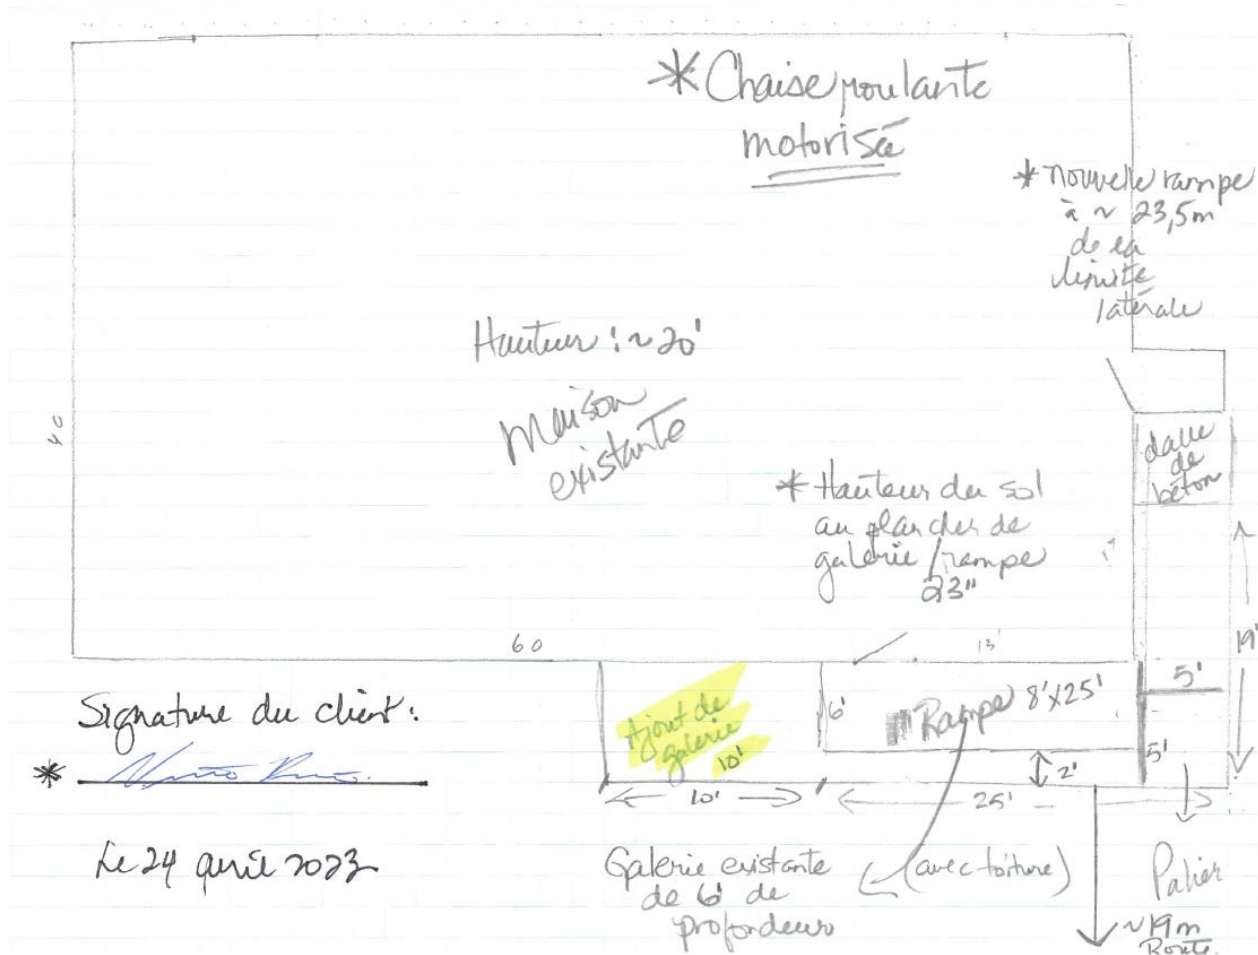 * Chaise roulante
motorisée
* nouvelle rampe
à ~ 23,5m
de la
limite
latérale
Hauteur : ~ 20'
Maison
existante
40
dalle
de
béton
* Hauteur du sol
au plancher de
galerie / rampe
23"
60
13'
19'
5'
Ajout de
galerie
10'
6'
Rampe 8'x25'
5'
2'
10'
25'
Signature du client :
*
Le 24 avril 2023
Galerie existante
de 6' de
profondeur
(avec toiture)
Palier
~19m
Route.